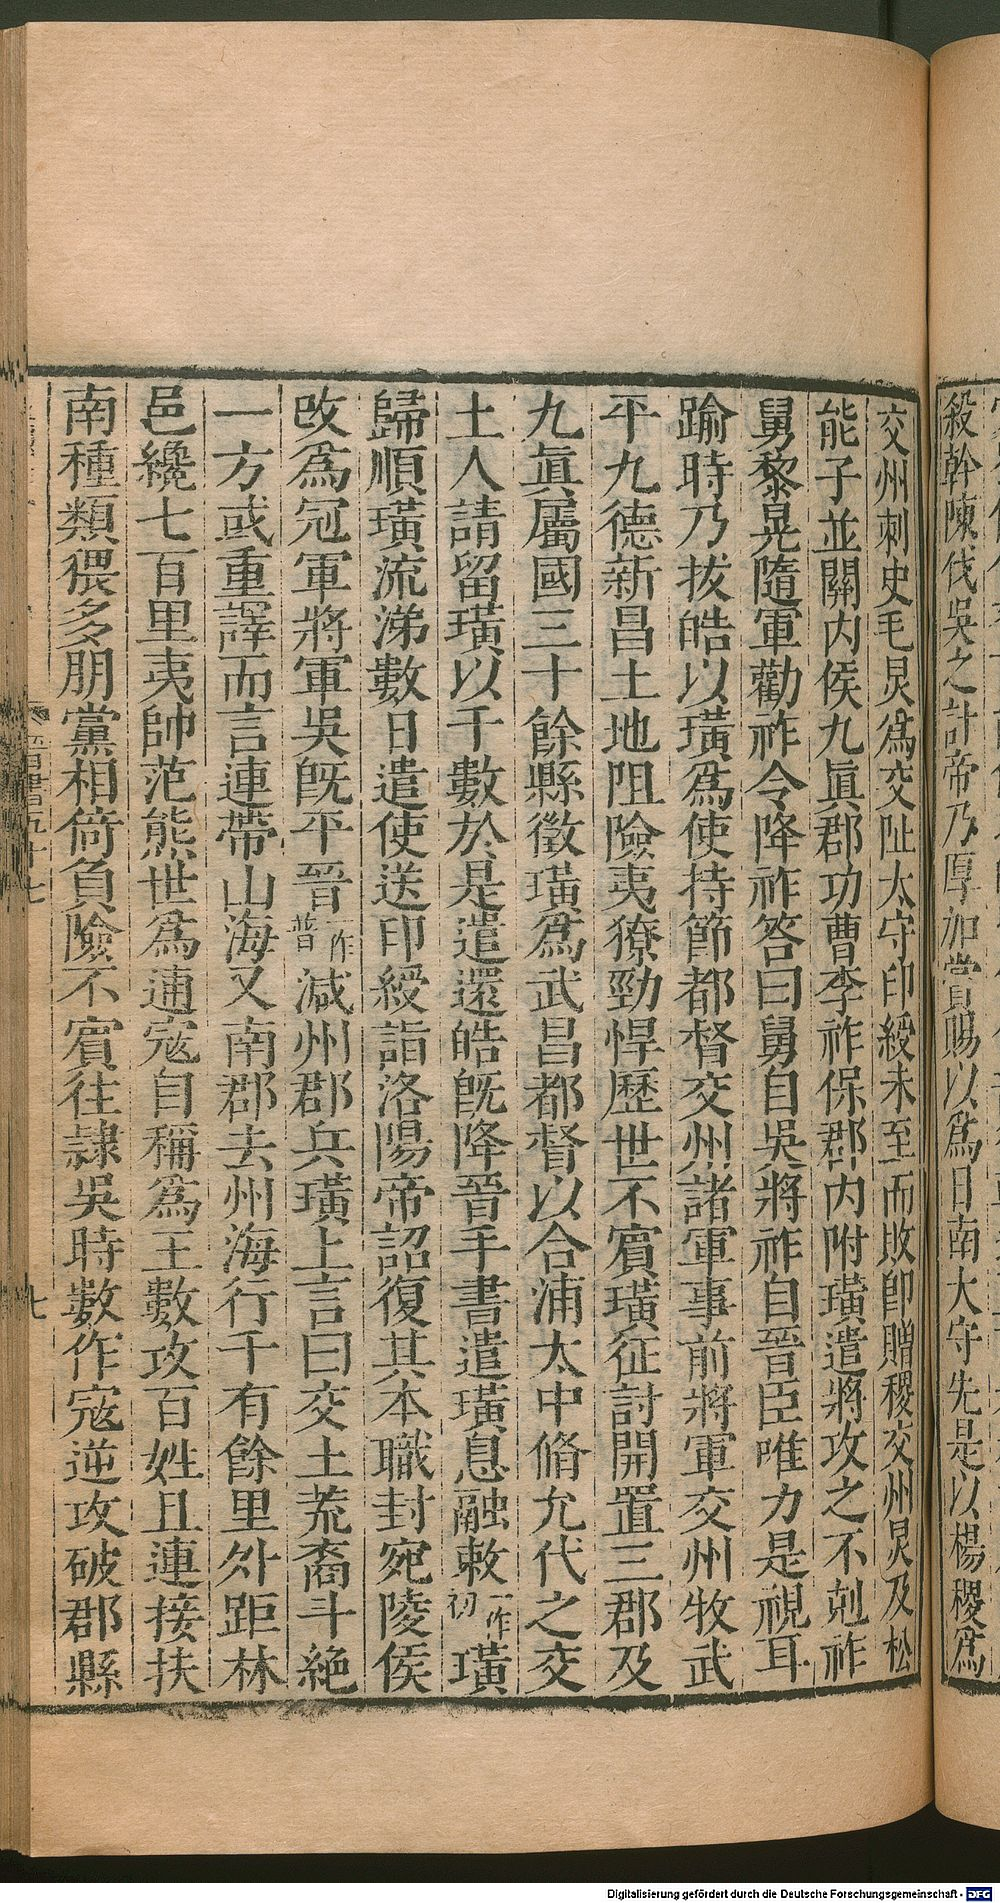 殺幹陳伐吳之計帝乃厚加賞賜以爲日南大守先是以楊稷爲
交州刺史毛炅爲交阯太守印綬未至而敗卽贈稷交州炅及松
能子並關内侯九眞郡功曹李祚保郡内附璜遣將攻之不剋祚
舅黎晃隨軍勸祚令降祚答曰舅自吳將祚自晉臣唯力是視耳
踰時乃拔皓以璜爲使持節都督交州諸軍事前將軍交州牧武
平九德新昌土地阻險夷獠勁悍歷世不賓璜征討開置三郡及
九眞屬國三十餘縣徵璜爲武昌都督以合浦太中脩允代之交
土人請留璜以千數於是遣還皓旣降晉手書遣璜息融敕一作初璜
歸順璜流涕數日遣使送印綬詣洛陽帝詔復其本職封宛陵侯
改爲冠軍將軍吳旣平晉一作普減州郡兵璜上言曰交土荒裔斗絶
一方或重譯而言連帶山海又南郡去州海行千有餘里外距林
邑纔七百里夷帥范熊世爲逋寇自稱爲王數攻百姓且連接扶
南種類猥多朋黨相倚負險不賓往隷吳時數作寇逆攻破郡縣
七
Digitalisierung gefördert durch die Deutsche Forschungsgemeinschaft - DFG